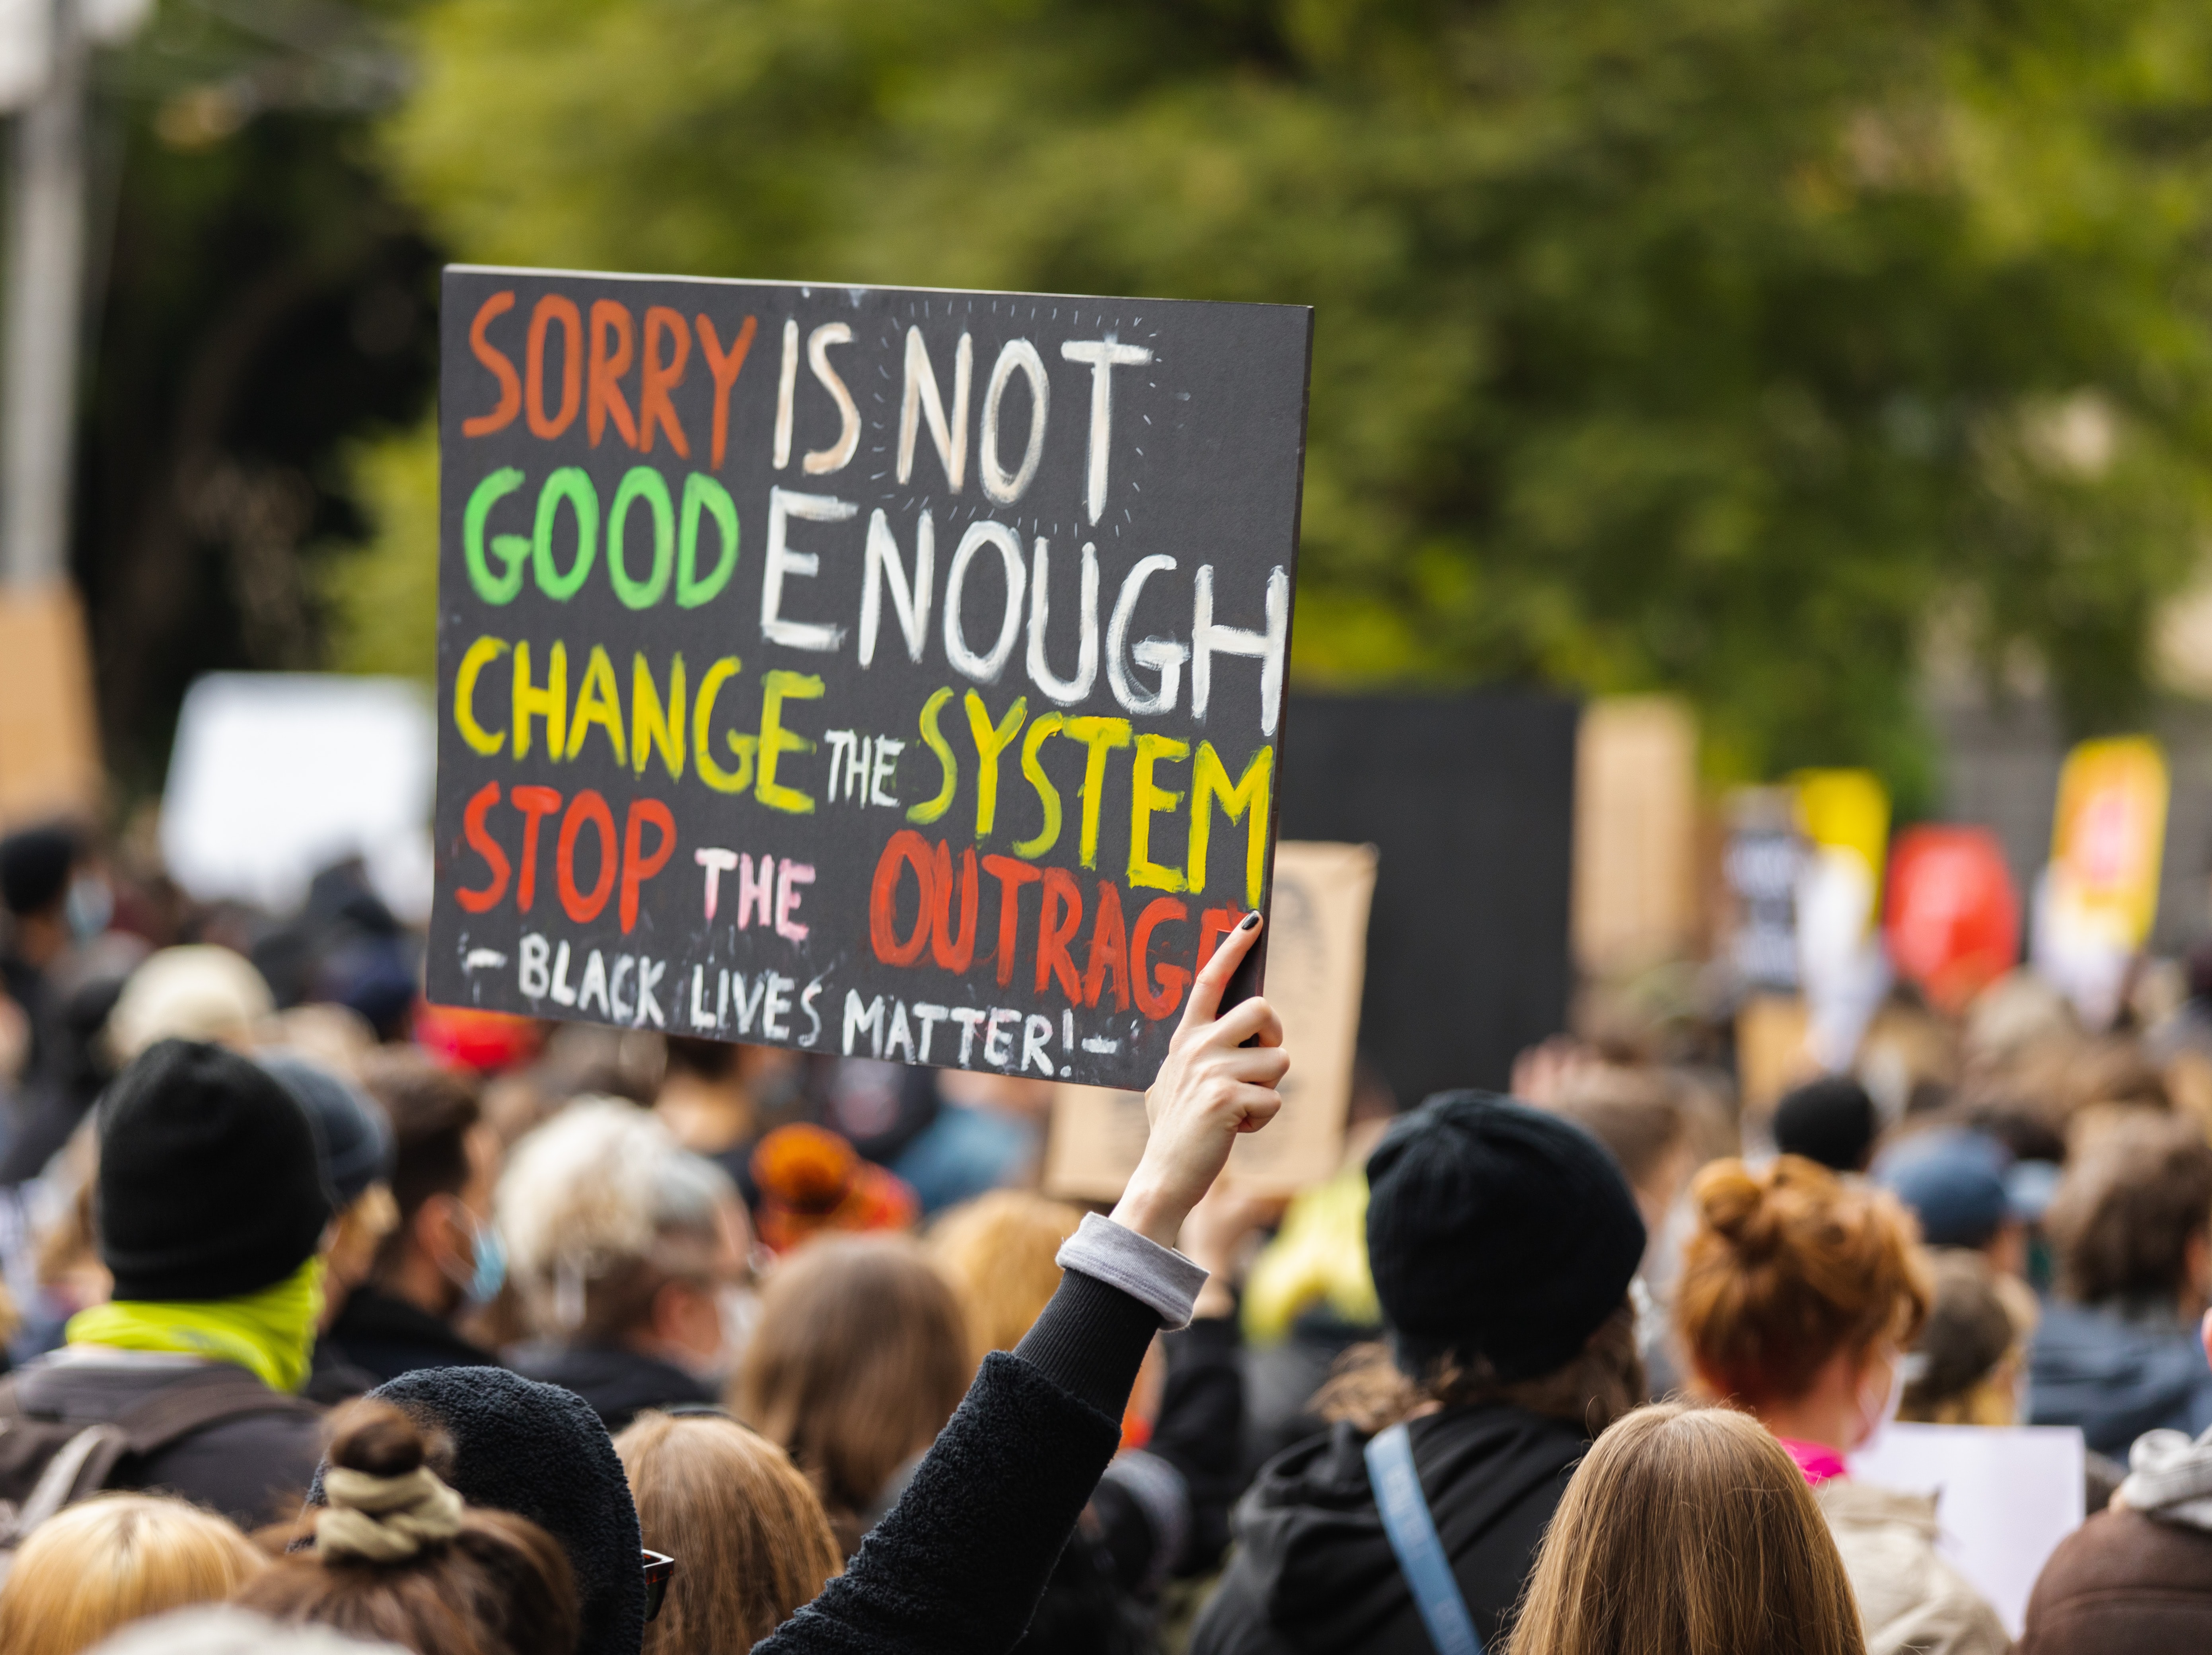 SORRY IS NOT
GOOD ENOUGH
CHANGE THE SYSTEM
STOP THE OUTRAGE
- BLACK LIVES MATTER! -